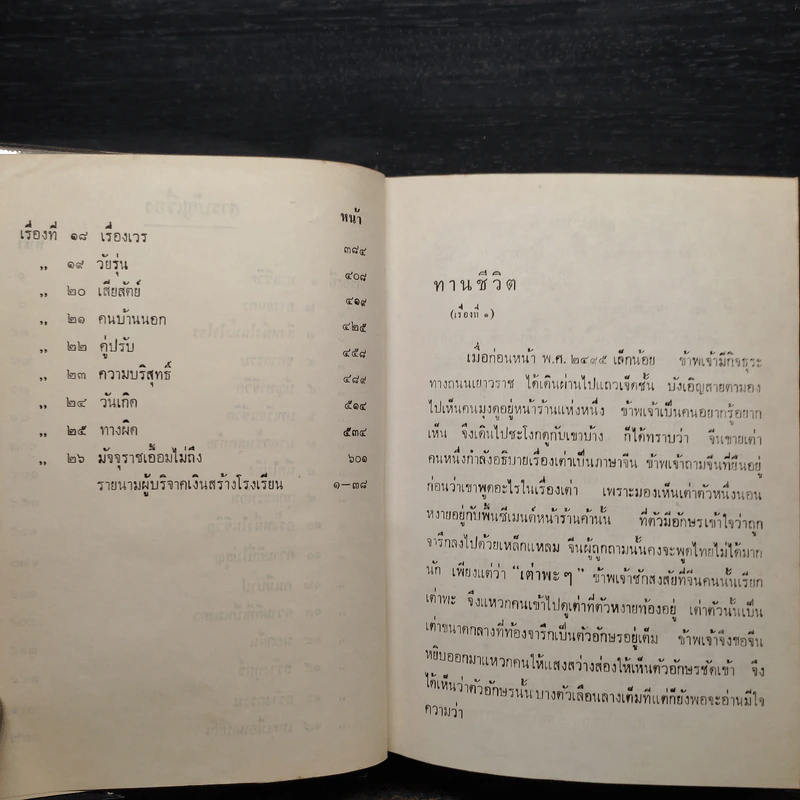 หน้า
เรื่องที่ ๑๘ เรื่องเวร ๓๘๔
„ ๑๙ วัยรุ่น ๔๐๘
„ ๒๐ เสียสัตย์ ๔๑๙
„ ๒๑ คนบ้านนอก ๔๒๕
„ ๒๒ คู่ปรับ ๔๕๘
„ ๒๓ ความบริสุทธิ์ ๔๘๙
„ ๒๔ วันเกิด ๕๑๔
„ ๒๕ ทางผิด ๕๓๔
„ ๒๖ มัจจุราชเอื้อมไม่ถึง ๖๐๑
รายนามผู้บริจาคเงินสร้างโรงเรียน ๑—๓๘
ทานชีวิต
(เรื่องที่ ๑)
เมื่อก่อนหน้า พ.ศ. ๒๔๙๕ เล็กน้อย ข้าพเจ้ามีกิจธุระ
ทางถนนเยาวราช ได้เดินผ่านไปแถวเจ็ดชั้น บังเอิญสายตามอง
ไปเห็นคนมุงดูอยู่หน้าร้านแห่งหนึ่ง ข้าพเจ้าเป็นคนอยากรู้อยาก
เห็น จึงเดินไปชะโงกดูกับเขาบ้าง ก็ได้ทราบว่า จีนขายเต่า
คนหนึ่งกำลังอธิบายเรื่องเต่าเป็นภาษาจีน ข้าพเจ้าถามจีนที่ยืนอยู่
ก่อนว่าเขาพูดอะไรในเรื่องเต่า เพราะมองเห็นเต่าตัวหนึ่งนอน
หงายอยู่กับพื้นซีเมนต์หน้าร้านค้านั้น ที่ตัวมีอักษรเข้าใจว่าถูก
จารึกลงไปด้วยเหล็กแหลม จีนผู้ถูกถามนั้นคงจะพูดไทยไม่ได้มาก
นัก เพียงแต่ว่า “เต่าพะๆ” ข้าพเจ้าชักสงสัยที่จีนคนนั้นเรียก
เต่าพะ จึงแหวกคนเข้าไปดูเต่าที่ตัวหงายท้องอยู่ เต่าตัวนั้นเป็น
เต่าขนาดกลางที่ท้องจารึกเป็นตัวอักษรอยู่เต็ม ข้าพเจ้าจึงขอจีน
หยิบออกมาแหวกคนให้แสงสว่างส่องให้เห็นตัวอักษรชัดเข้า จึง
ได้เห็นว่าตัวอักษรนั้น บางตัวเลือนลางเต็มทีแต่ก็ยังพอจะอ่านมีใจ
ความว่า